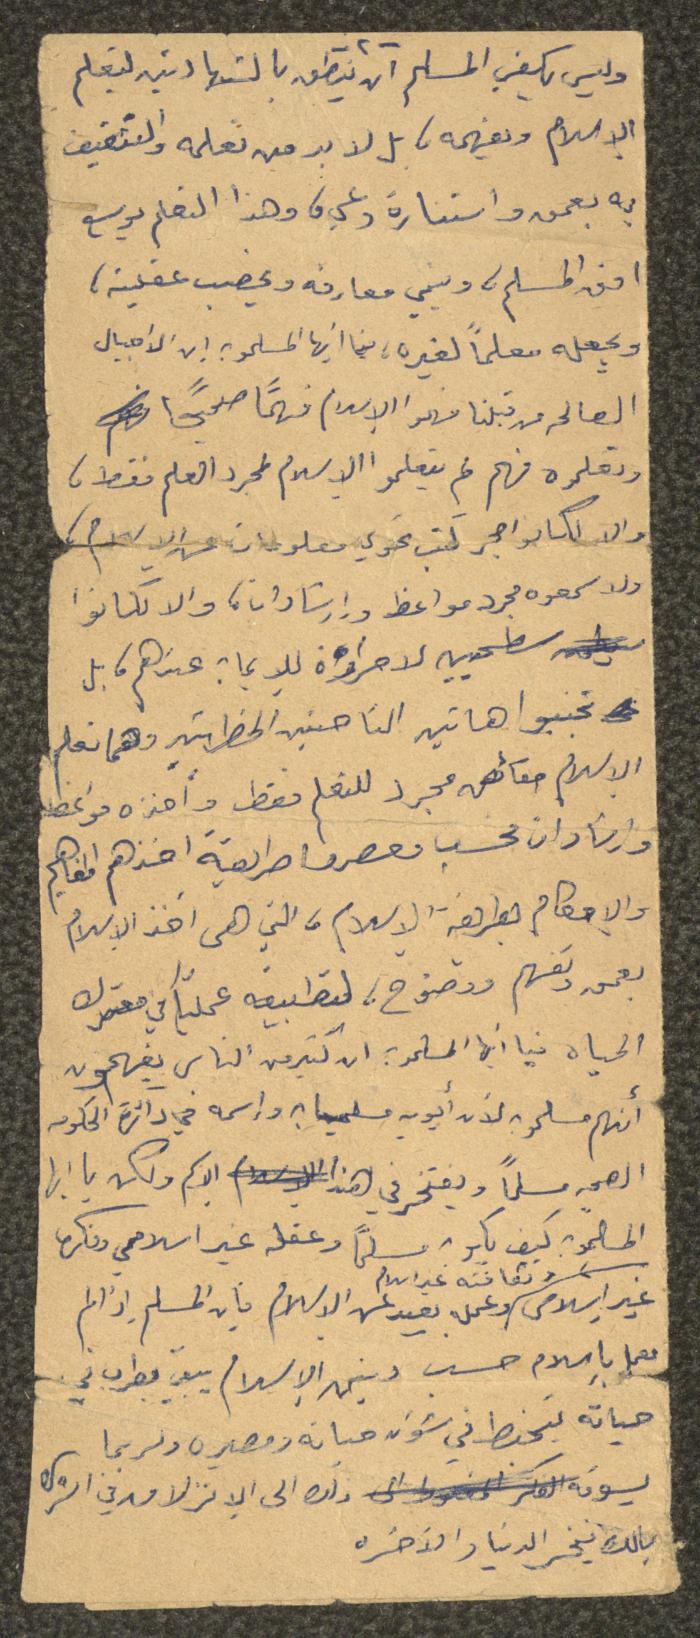 ٢
وليس يكفي المسلم أن ينطق بالشهادتين ليتعلم
الإسلام ويفهمه، بل لا بد من تعلمه والتثقيف
به بعمق واستنارة وعي، وهذا التعلم يوسع
افق المسلم، وينمي معارفه ويخصب عقليته،
ويجعله معلماً لغيره، فيا أيها المسلمون إن الأجيال
الصالحه من قبلنا فهموا الإسلام فهمًا صحيحًا
وتعلموه فهم لم يتعلموا الإسلام لمجرد العلم فقط،
والا لكانوا مجرد كتب تحوي معلومات عن الإسلام،
ولا سمعوه مجرد مواعظ وإرشادات، والا لكانوا
سطحيين لا حرارة للإيمان عندهم، بل
تجنبوا هاتين الناحيتين الخطرتين وهما تعلم
الإسلام حقائق مجرد للتعلم فقط وأخذه مواعظ
وارشادات فحسب وحصروا طريقة اخذهم المفاهيم
والاحكام بطريقة الإسلام، التي هي أخذ الإسلام
بعمق وتفهم ووضوح، لتطبيقه عمليًا في معترك
الحياه فيا أيها المسلمون ان كثير من الناس يفهمون
أنهم مسلمون لأن أبويه مسلمان واسمه في دائرة الحكومه
مسلماً ويفتخر في هذا الاسم ولكن يا ايها
المسلمون كيف يكون مسلماً وعقله غير اسلامي وفكره
وثقافته غير اسلام
غير إسلامي وعمله بعيد عن الإسلام فإن المسلم إذا لم
يعمل بإسلام حسب دينه الإسلام يبقى مضطرب في
حياته يتخبط في شؤون حياته ومصيره ولربما
يسوقه ذلك الى الإنزلاق في الشرك
بالله فيخسر الدنيا والآخره